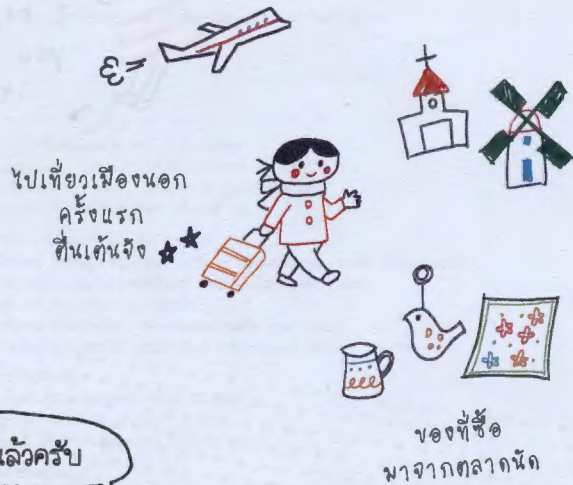 ไปเที่ยวเมืองนอก
ครั้งแรก
ตื่นเต้นจัง
ของที่ซื้อ
มาจากตลาดนัด
ล้วครับ